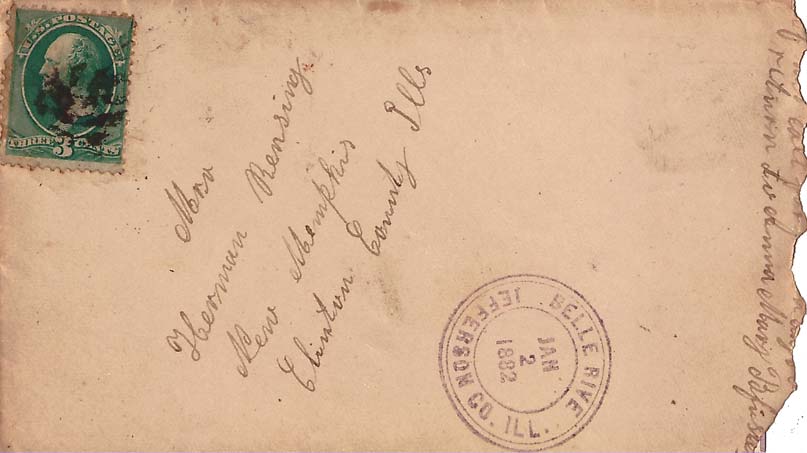 U.S. POSTAGE
THREE 3 CENTS
Mrs
Herman Rensing
New Memphis
Clinton County Ills
BELLE RIVE
JEFFERSON CO. ILL.
JAN
2
1882
return to Anna Mary